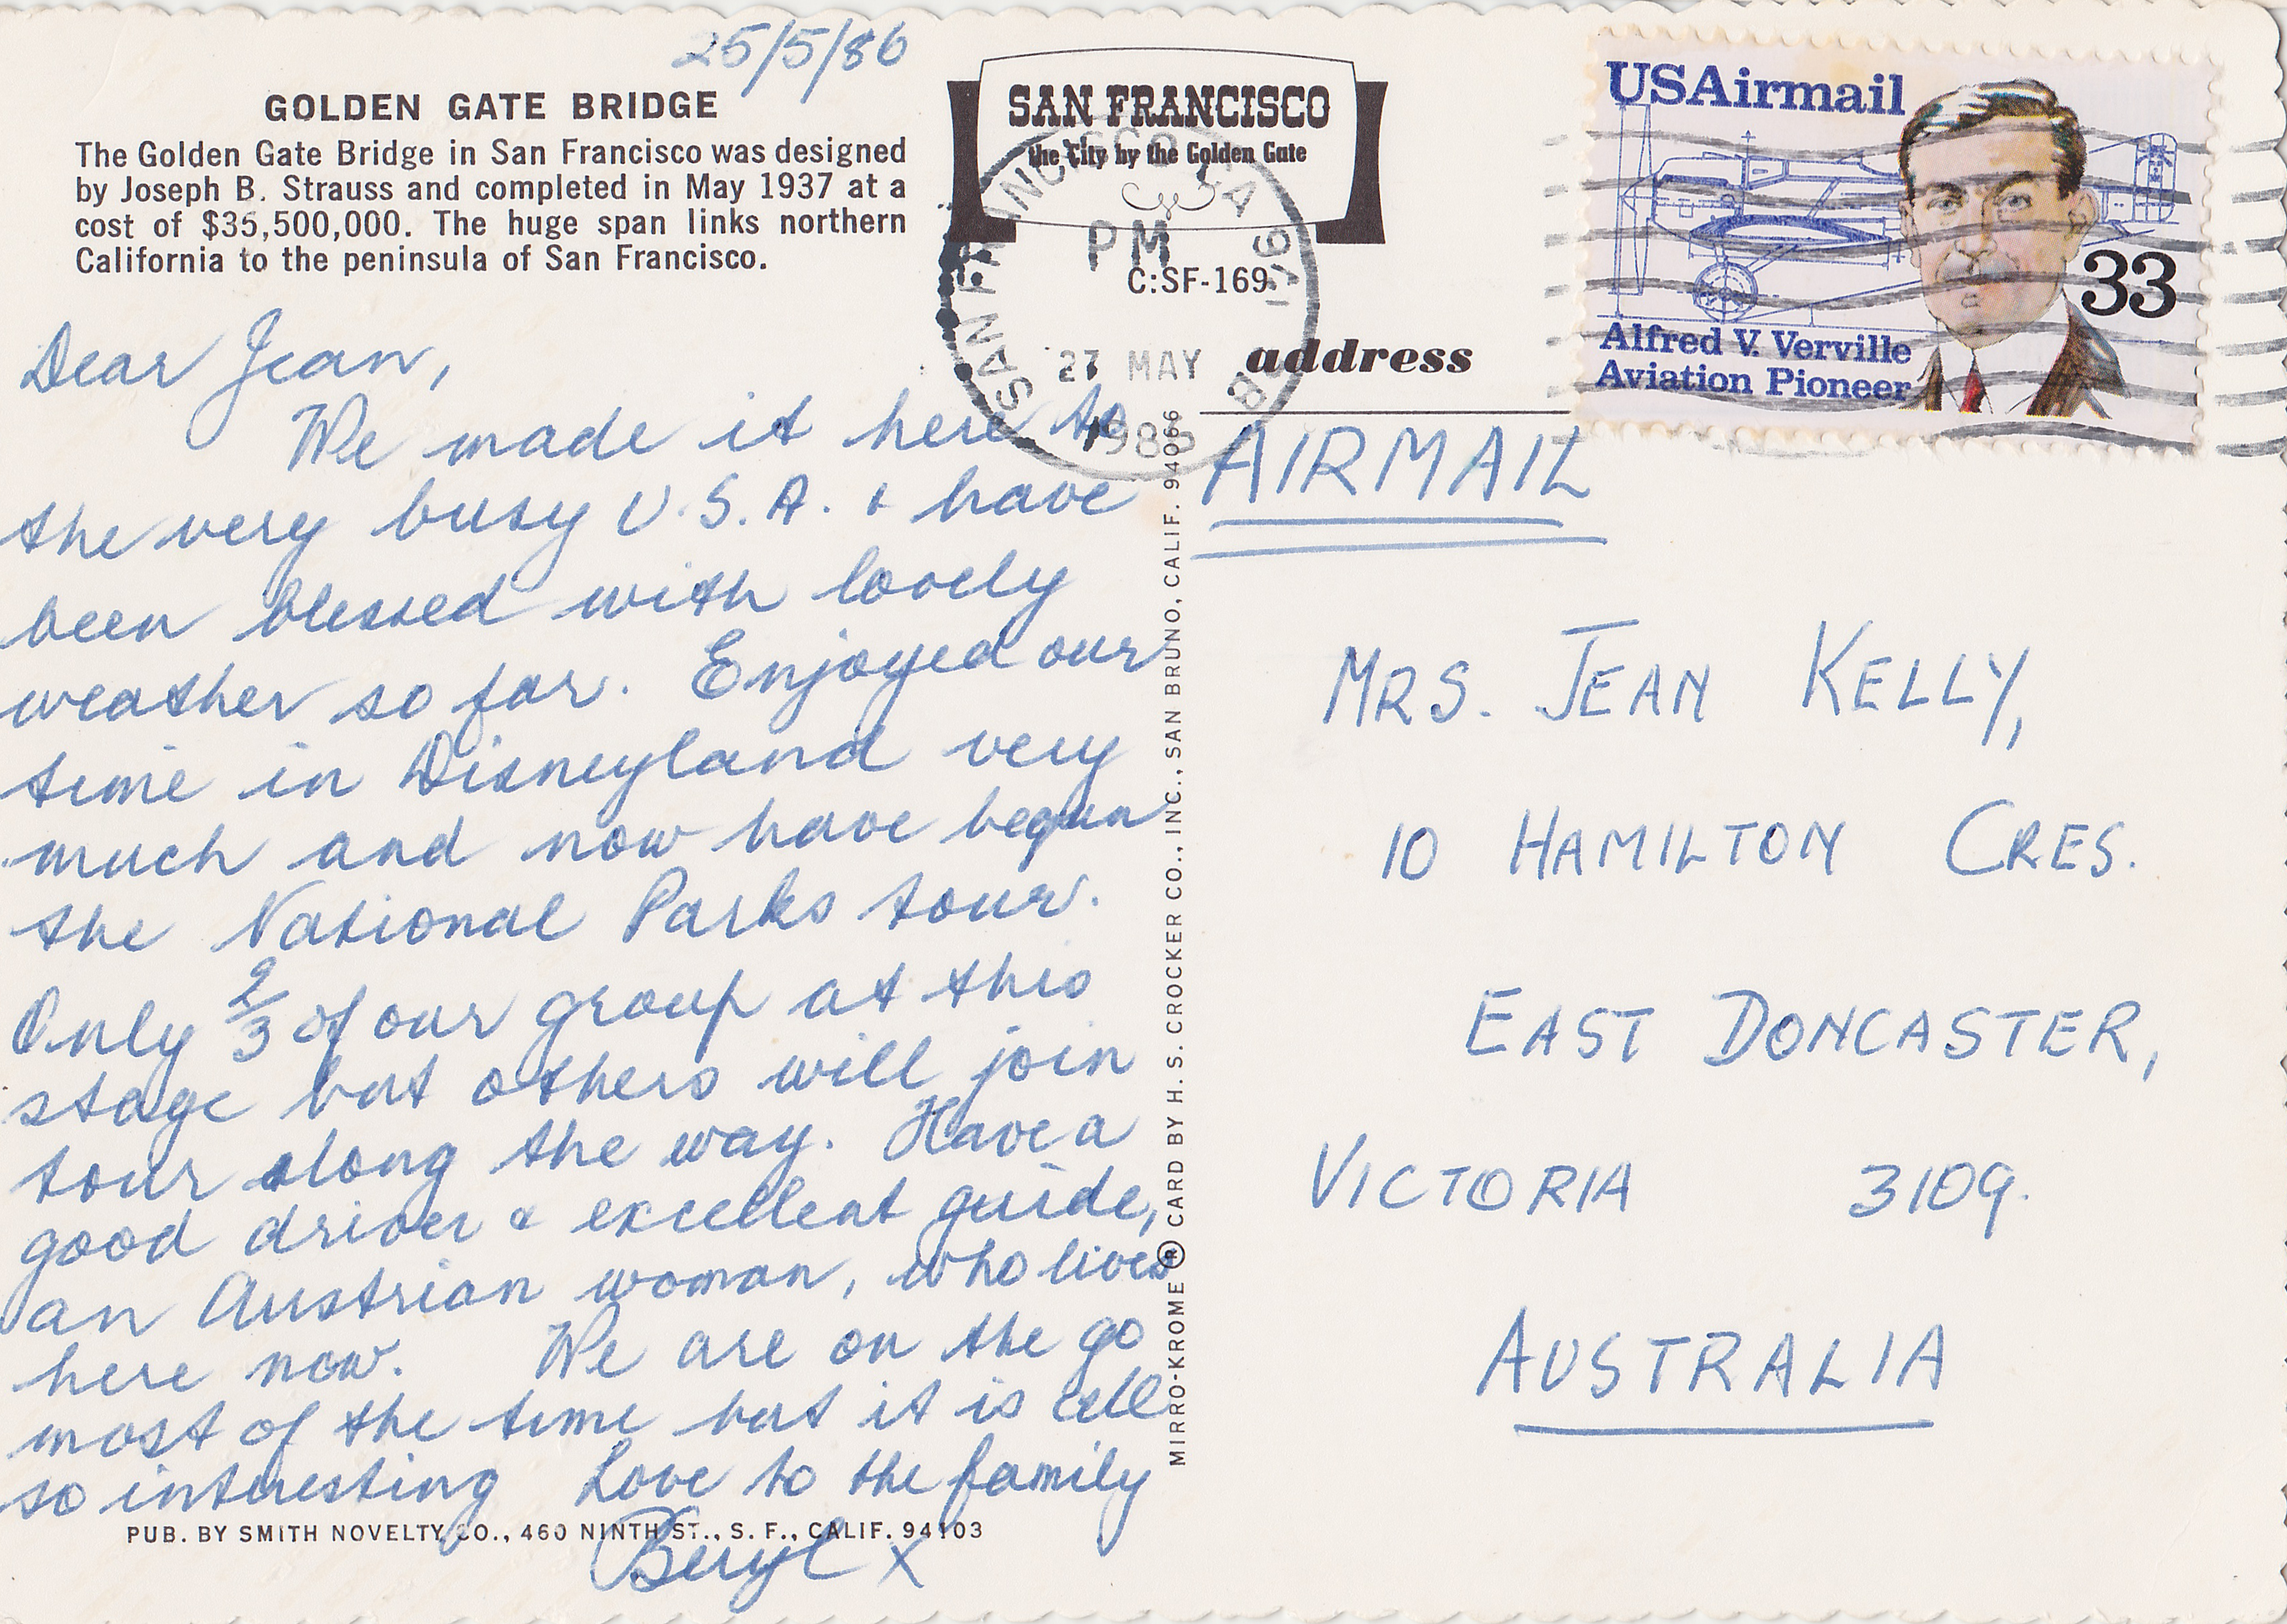 25/5/86
GOLDEN GATE BRIDGE
The Golden Gate Bridge in San Francisco was designed
by Joseph B. Strauss and completed in May 1937 at a
cost of $35,500,000. The huge span links northern
California to the peninsula of San Francisco.
Dear Jean,
We made it here to
the very busy U.S.A. & have
been blessed with lovely
weather so far. Enjoyed our
time in Disneyland very
much and now have begun
the National Parks tour.
Only 2/3 of our group at this
stage but others will join
tour along the way. Have a
good driver & excellent guide,
an Austrian woman, who lives
here now. We are on the go
most of the time but it is all
so interesting Love to the family
Beryl x
PUB. BY SMITH NOVELTY CO., 460 NINTH ST., S. F., CALIF. 94103
SAN FRANCISCO
the City by the Golden Gate
C:SF-169
SAN FRANCISCO CA 941
PM
27 MAY
1986
address
MIRRO-KROME ® CARD BY H. S. CROCKER CO., INC., SAN BRUNO, CALIF. 94066
USAirmail
33
Alfred V. Verville
Aviation Pioneer
AIRMAIL
MRS. JEAN KELLY,
10 HAMILTON CRES.
EAST DONCASTER,
VICTORIA 3109.
AUSTRALIA